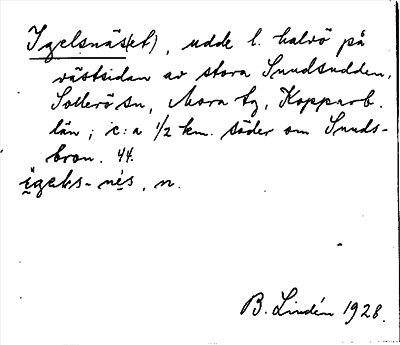 Igelsnäs(et), udde l. halvö på
västsidan av stora Sundsudden,
Sollerö sn, Mora tg, Kopparb.
län; c:a 1/2 km. söder om Sunds-
bron. 44.
igels-nés, n.
B. Lindén 1928.